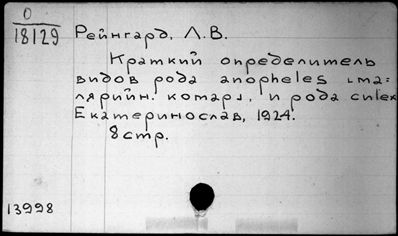 0
18129
Рейнгард, Л.В.
Краткий определитель
видов рода anopheles ма=
лярийн. комара, и рода culex
Екатеринослав, 1924.
8 стр.
13998